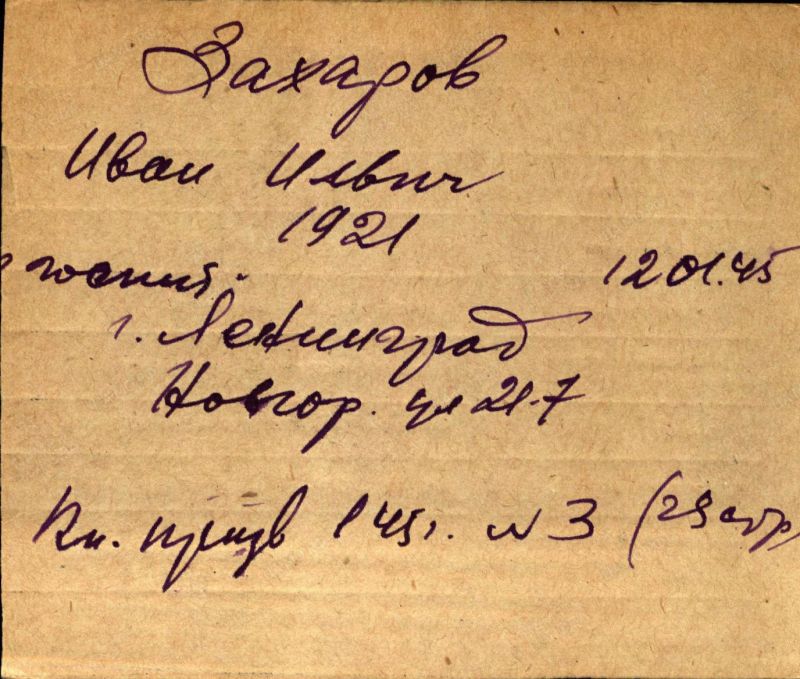 Захаров
Иван Ильич
1921
госпит. 12 01.45
г. Ленинград
Новгор. ул 21-7
Кн. призв 145г. № 3 (29 стр